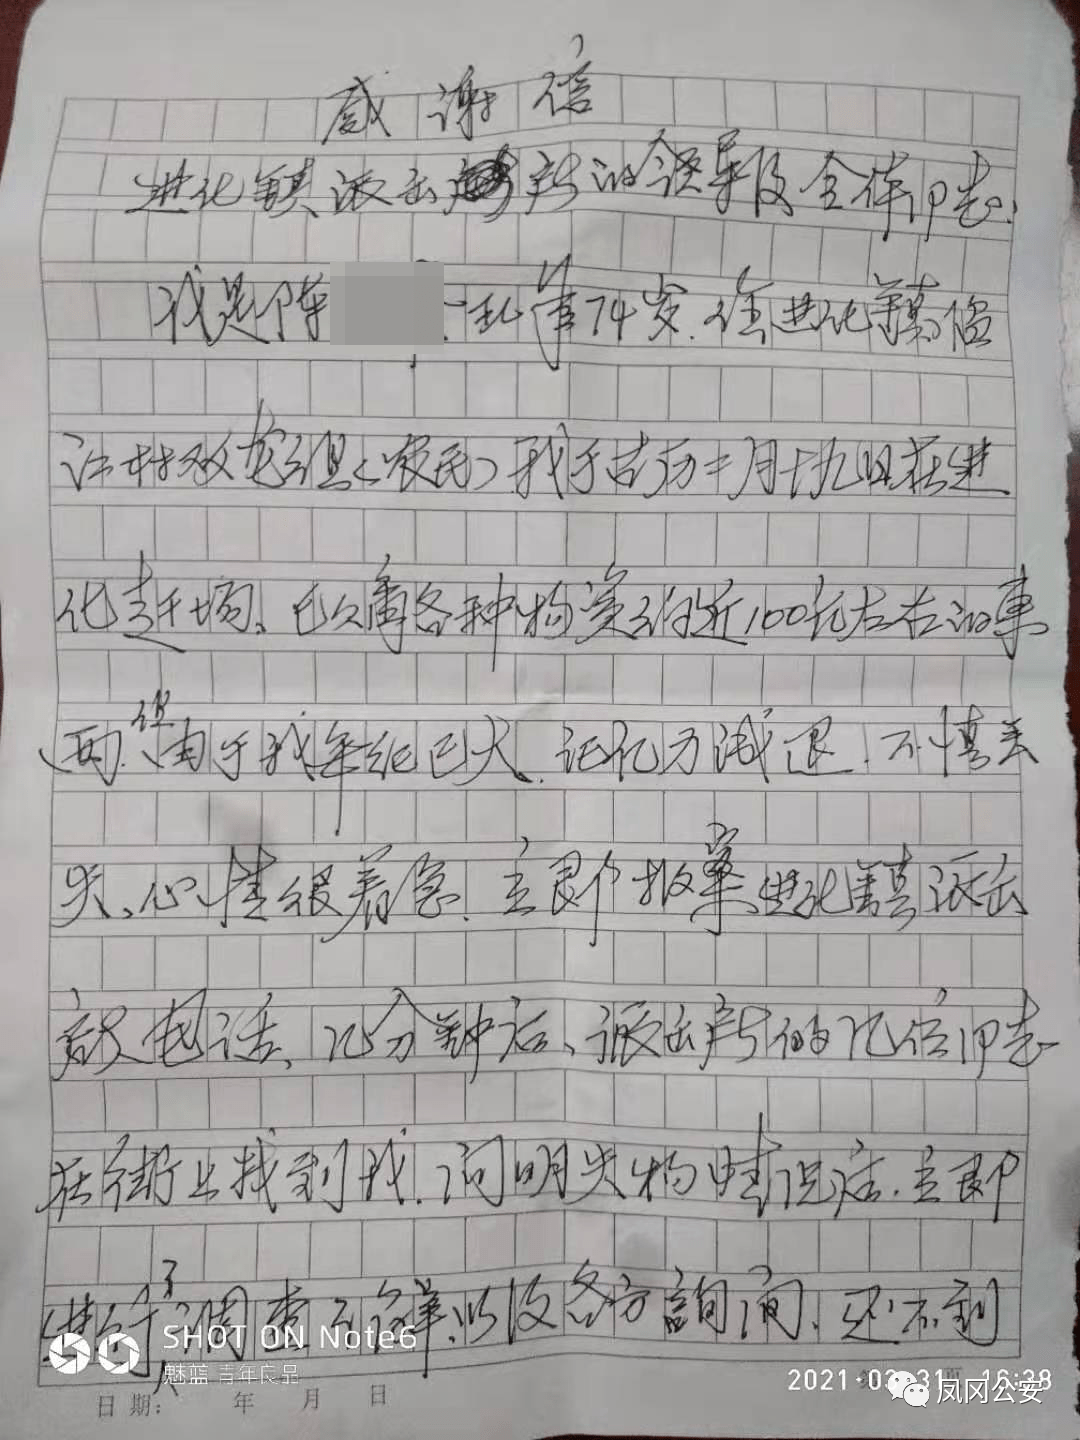 感谢信
进化镇派出所的领导及全体同志:
我是陈 一 现年74岁.住进化镇临
江村双龙组(农民)我于古历二月十九日在进
化赶干场、已购各种物资约近100元左右的东
西.但由于我年纪已大.记忆力减退.不慎丢
失、心情很着急.立即报案进化镇派出
所电话、几分钟后、派出所的几位同志
在街上找到我.问明失物情况后.立即
进行了调查了解以及各方询问、还不到
SHOT ON Note6
魅蓝 青年良品
日期: 年 月 日
2021·03·31 16:38
凤冈公安